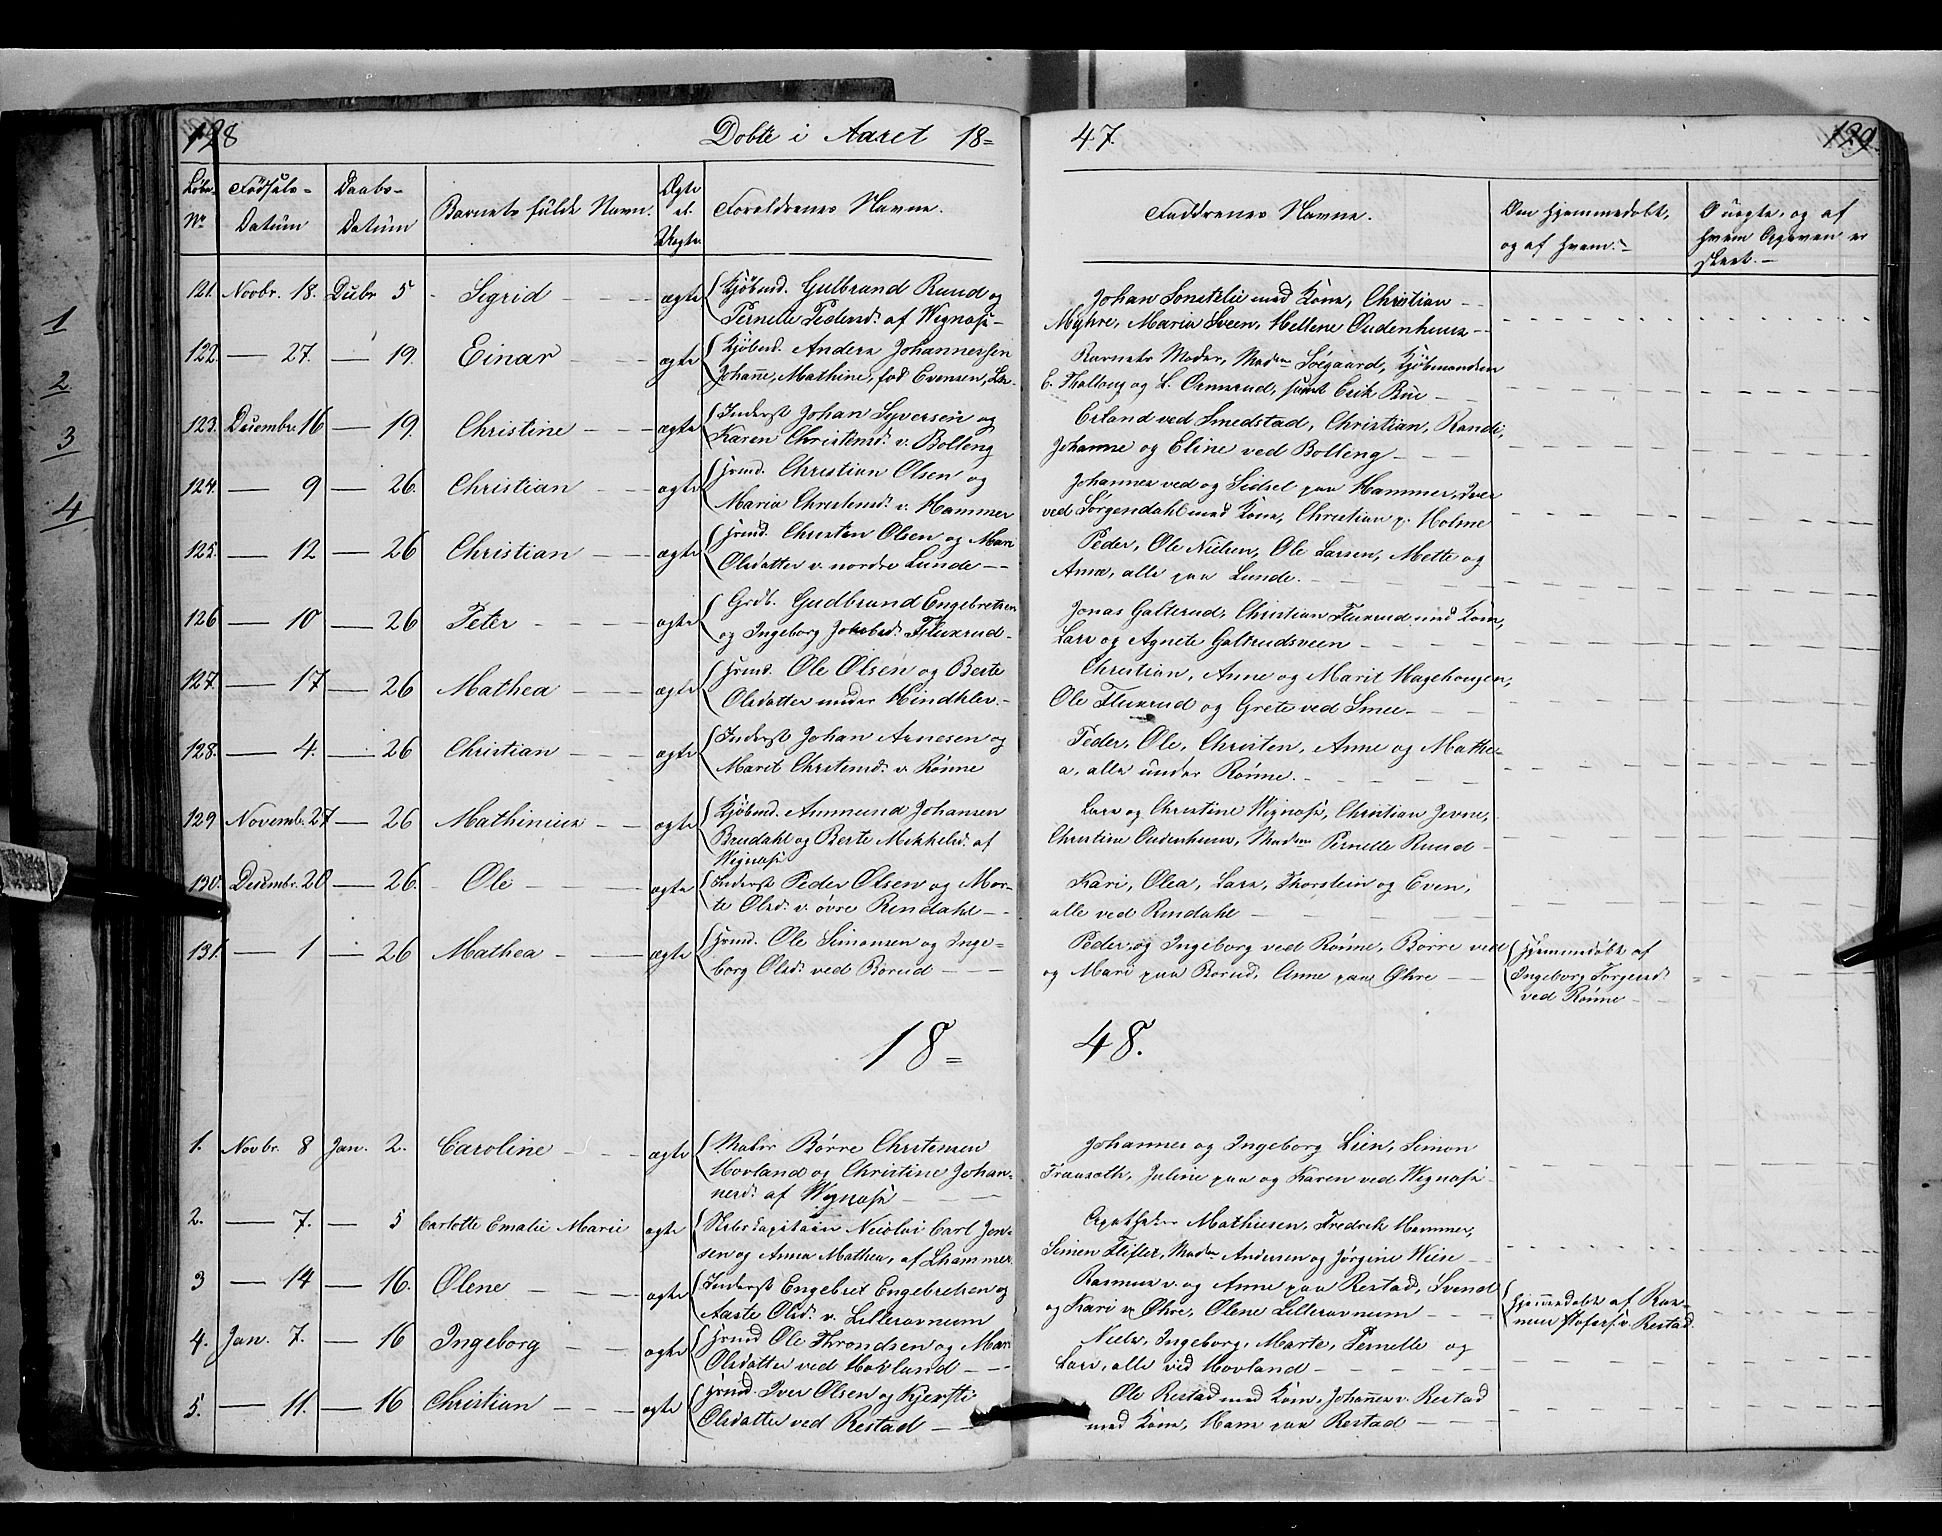 128
Dobte i Aaret 18=
47.
129.
Løbe- Nr.
Fødsels- Datum
Daabs- Datum
Barnets fulde Navn.
Ægte el. Uægte
Forældrenes Navne.
Faddrenes Navne.
Om Hjemmedøbt, og af hvem.
og af hvem Opgaven er skeet.
1
2
3
4
121. Novbr. 18. Decbr. 5 Sigrid ægte Kjøbmd. Gulbrand Ruud og
Pernelle Pedersd. af Wignæss
Johan Sonstelie med Kone, Christian
Myhre, Maria Sveen, Hellene Oudenhuus
122. — 27. — 19. Einar ægte Kjøbmd. Anders Johannessen
Johanne, Mathine, fød Evensen,
Barnets Moder, Madm Soegaard, Kjøbmændene
E. Thallaug og L. Ormrud, samt Erik Rue
123. Decembr. 16 — 19. Christine ægte Inderst Johan Syversen og
Karen Christensd. v. Bolleng
Erland ved Smedstad, Christian, Randi,
Johanne og Eline ved Bolleng
124. — 9 — 26. Christian ægte Hmd. Christian Olsen og
Maria Christensd. v. Hammer
Johannes ved og Sidsel paa Hammer, Iver
ved Sørgendahl med Kone, Christian p. Holme
125. — 12 — 26 Christian ægte Hmd. Christen Olsen og Mari
Olsdatter v. nordre Lunde
Peder, Ole Nielsen, Ole Larsen, Mette og
Anne, alle paa Lunde.
126 — 10 — 26 Peter ægte Grdb. Gudbrand Engebretsen
og Ingeborg Jokobsd. Fluxrud
Jonas Galterud, Christian Fluxrud med Kone,
Lars og Agnete Galtrudsveen
127. — 17 — 26 Mathea ægte Hmd. Ole Olsen og Berte
Olsdatter under Hindklev.
Christian, Anne og Marit Hagehougen,
Ole Fluxrud og Grete ved Smee
128. — 4. — 26 Christian ægte Inderst Johan Arnesen og
Marit Christensd. v. Rønne
Peder, Ole, Christen, Anne og Mathe-
a, alle under Rønne.
129 Novemb. 27 — 26 Mathinius ægte Kjøbmd. Ammund Johansen
Breidahl og Berte Mikkelsd. af
Wignæss
Lars og Christine Wignæss, Christian Jevne,
Christine Oudenhuus, Madm Pernelle Ruud
130. Decembr. 20 — 26. Ole ægte Inderst Peder Olsen og Mar-
te Olsd. v. øvre Rindahl
Kari, Olea, Lars, Thorstein og Even,
alle ved Rindahl
131. — 1 — 26 Mathea ægte Hmd. Ole Simonsen og Inge-
borg Olsd. ved Borud
Peder og Ingeborg ved Rønne, Børre ved
og Mari paa Borud, Anne paa Øhre
Hjemmedøbt af
Ingeborg Torgersd.
ved Rønne
18=
48.
1. Novbr. 8 Jan. 2. Caroline ægte Børre Christensen
Hovland og Christine Johan-
nesd. af Wignæss
Johannes og Ingeborg Lien, Simon
Traaseth, Juline paa og Karen ved Wignæss
2. — 7. — 5 Carlotte Emalie Marie ægte Stabscapitain Nicolai Carl Jen-
sen og Anna Mathea, af Lhammer
Apotheker Mathiesen, Fredrik Hammer,
Simen Flifler, Madm Andersen og Jørgine Wiese
3 — 14 — 16. Olene ægte Inderst Engebret Engebretsen og
Aaste Olsd. v. Lilleravnum
Rasmus v. og Anne paa Restad, Svend
og Kari v. Øhre, Olene Lilleravnum
Hjemmedøbt af Ras-
mus v. Restad
4. Jan. 7. — 16 Ingeborg ægte Hmd Ole Throndsen og Mari
Olsdatter ved Hovland
Niels, Ingeborg, Marte, Pernelle og
Lars, alle ved Hovland
5. — 11. — 16 Christian ægte Hmd. Iver Olsen og Kjersti
Olsdatter ved Restad
Ole Restad med Kone, Johannes v. Restad
med Kone, Hans paa Restad